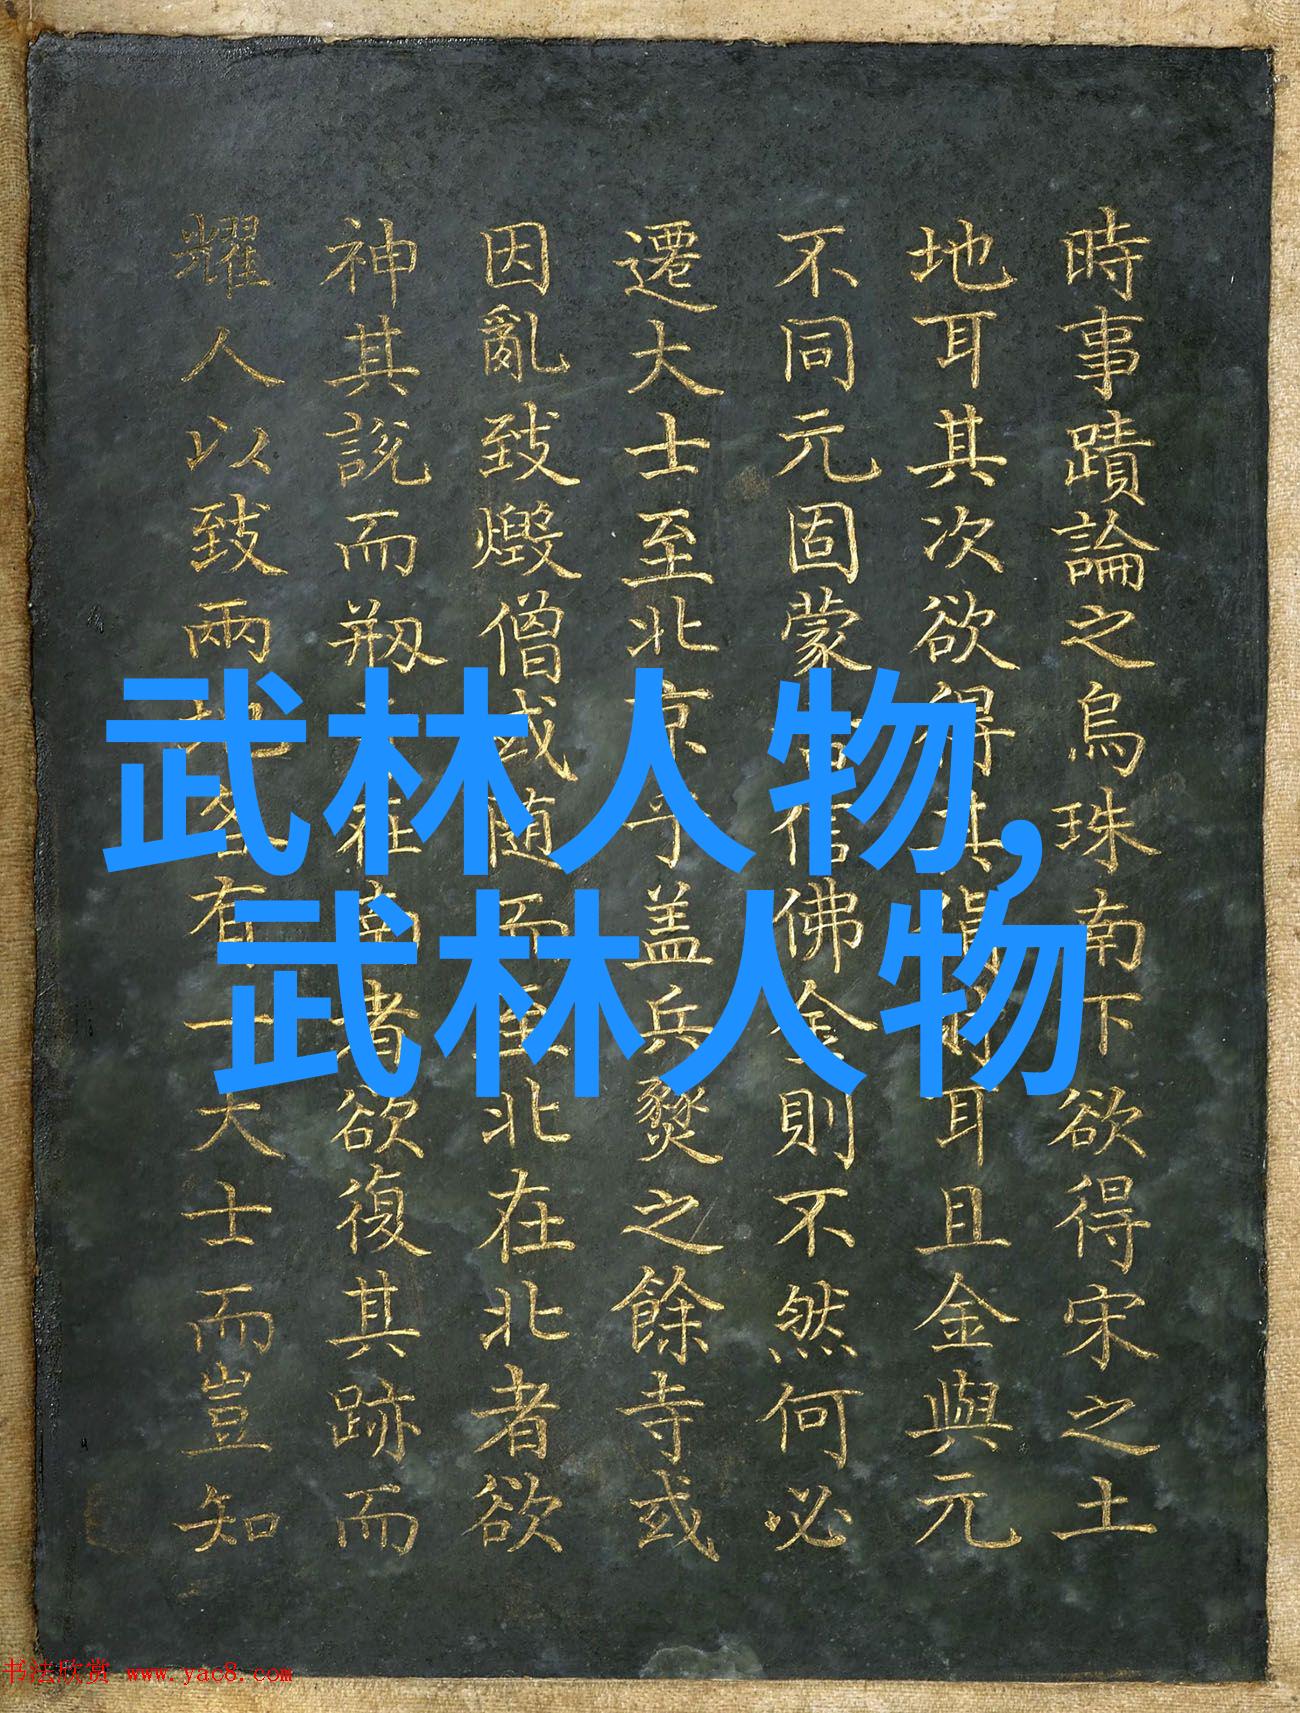 時事蹟論之烏珠南下欲得宋之土
地耳其次欲得其耳且金與元
不同元固蒙信佛金則不然何必
遷大士至北京乎盖兵燹之餘寺或
因亂致燬僧或随而至北在北者欲
神其說而剏在南者欲復其跡而
耀人以致兩地各有一大士而豈知
武林人物,
武林人物
书法欣赏 www.yac8.com